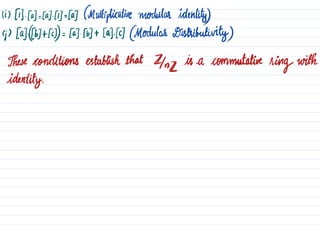 (i) [1].[a] = [a].[1] = [a] (Multiplicative modular identity)
(j) [a]([b]+[c]) = [a] [b] + [a].[c] (Modular Distributivity)
These conditions establish that ℤ/nℤ is a commutative ring with
identity.